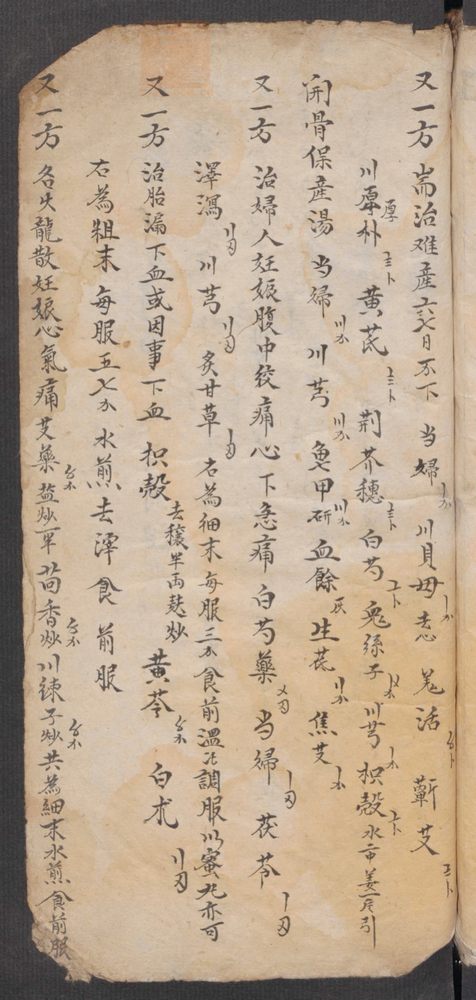 又一方 崙治难産六七日不下 当婦 川貝母去心 羌活 蘄艾
川厚朴 黄芪 荆芥穗 白芍 兔絲子 川芎 枳殻 水 姜 引
開骨保産湯 当婦 川芎 亀甲研 血餘灰 生芪 焦艾
又一方 治婦人妊娠腹中絞痛心下急痛 白芍藥 当婦 茯苓
澤瀉 川芎 炙甘草 右為細末每服三 食前溫 調服以蜜丸亦可
又一方 治胎漏下血或因事下血 枳殻去穰半両麸炒 黄芩 白朮
右為粗末 每服五七 水煎去滓食前服
又一方 名火龍散妊娠心氣痛 艾葉盐炒一半 茴香炒 川練子炒 共為細末水煎食前服